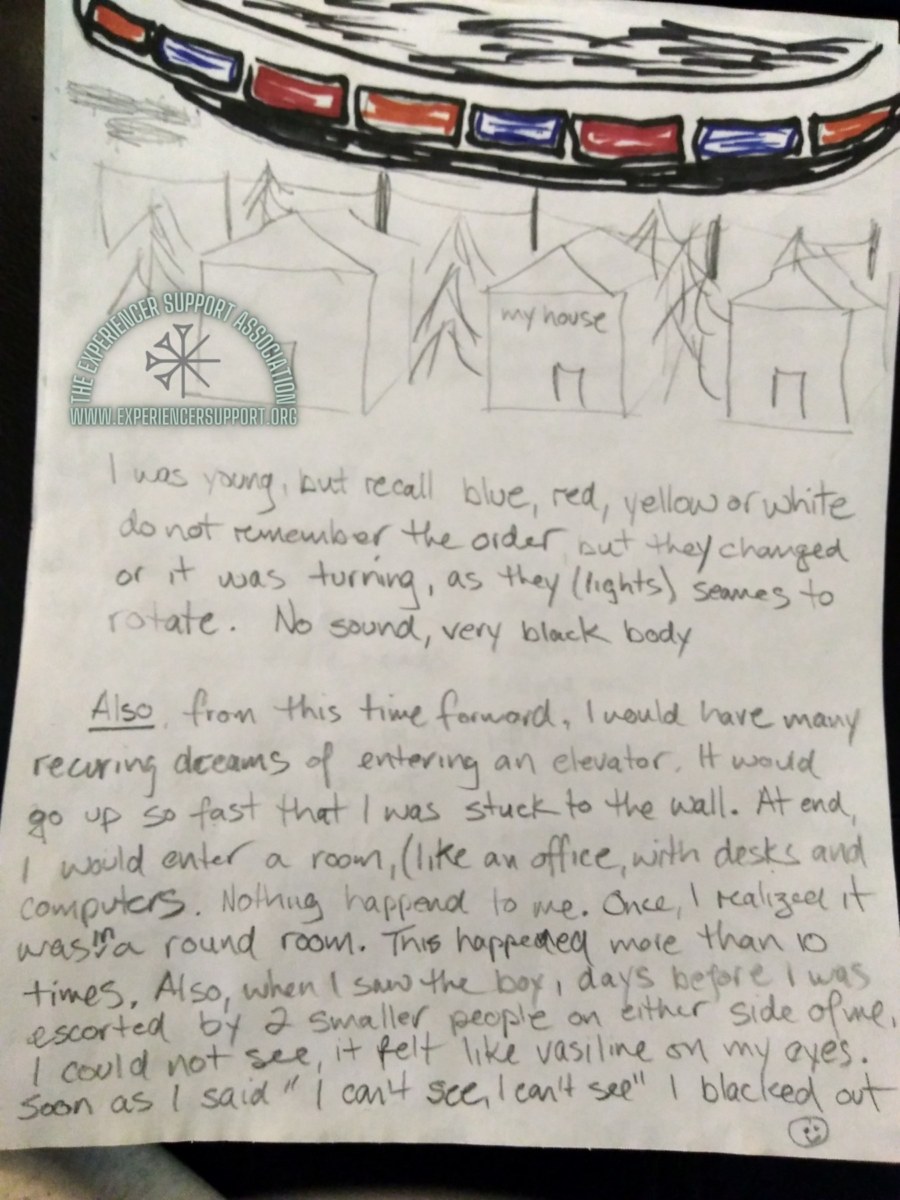 my house
THE EXPERIENCER SUPPORT ASSOCIATION
WWW.EXPERIENCERSUPPORT.ORG
I was young, but recall blue, red, yellow or white
do not remember the order but they changed
or it was turning, as they (lights) seames to
rotate. No sound, very black body
Also, from this time forward, I would have many
recuring dreams of entering an elevator. It would
go up so fast that I was stuck to the wall. At end,
I would enter a room, (like an office, with desks and
computers. Nothing happend to me. Once, I realized it
was in a round room. This happened more than 10
times. Also, when I saw the boy, days before I was
escorted by 2 smaller people on either side of me.
I could not see, it felt like vasiline on my eyes.
Soon as I said "I can't see, I can't see" I blacked out